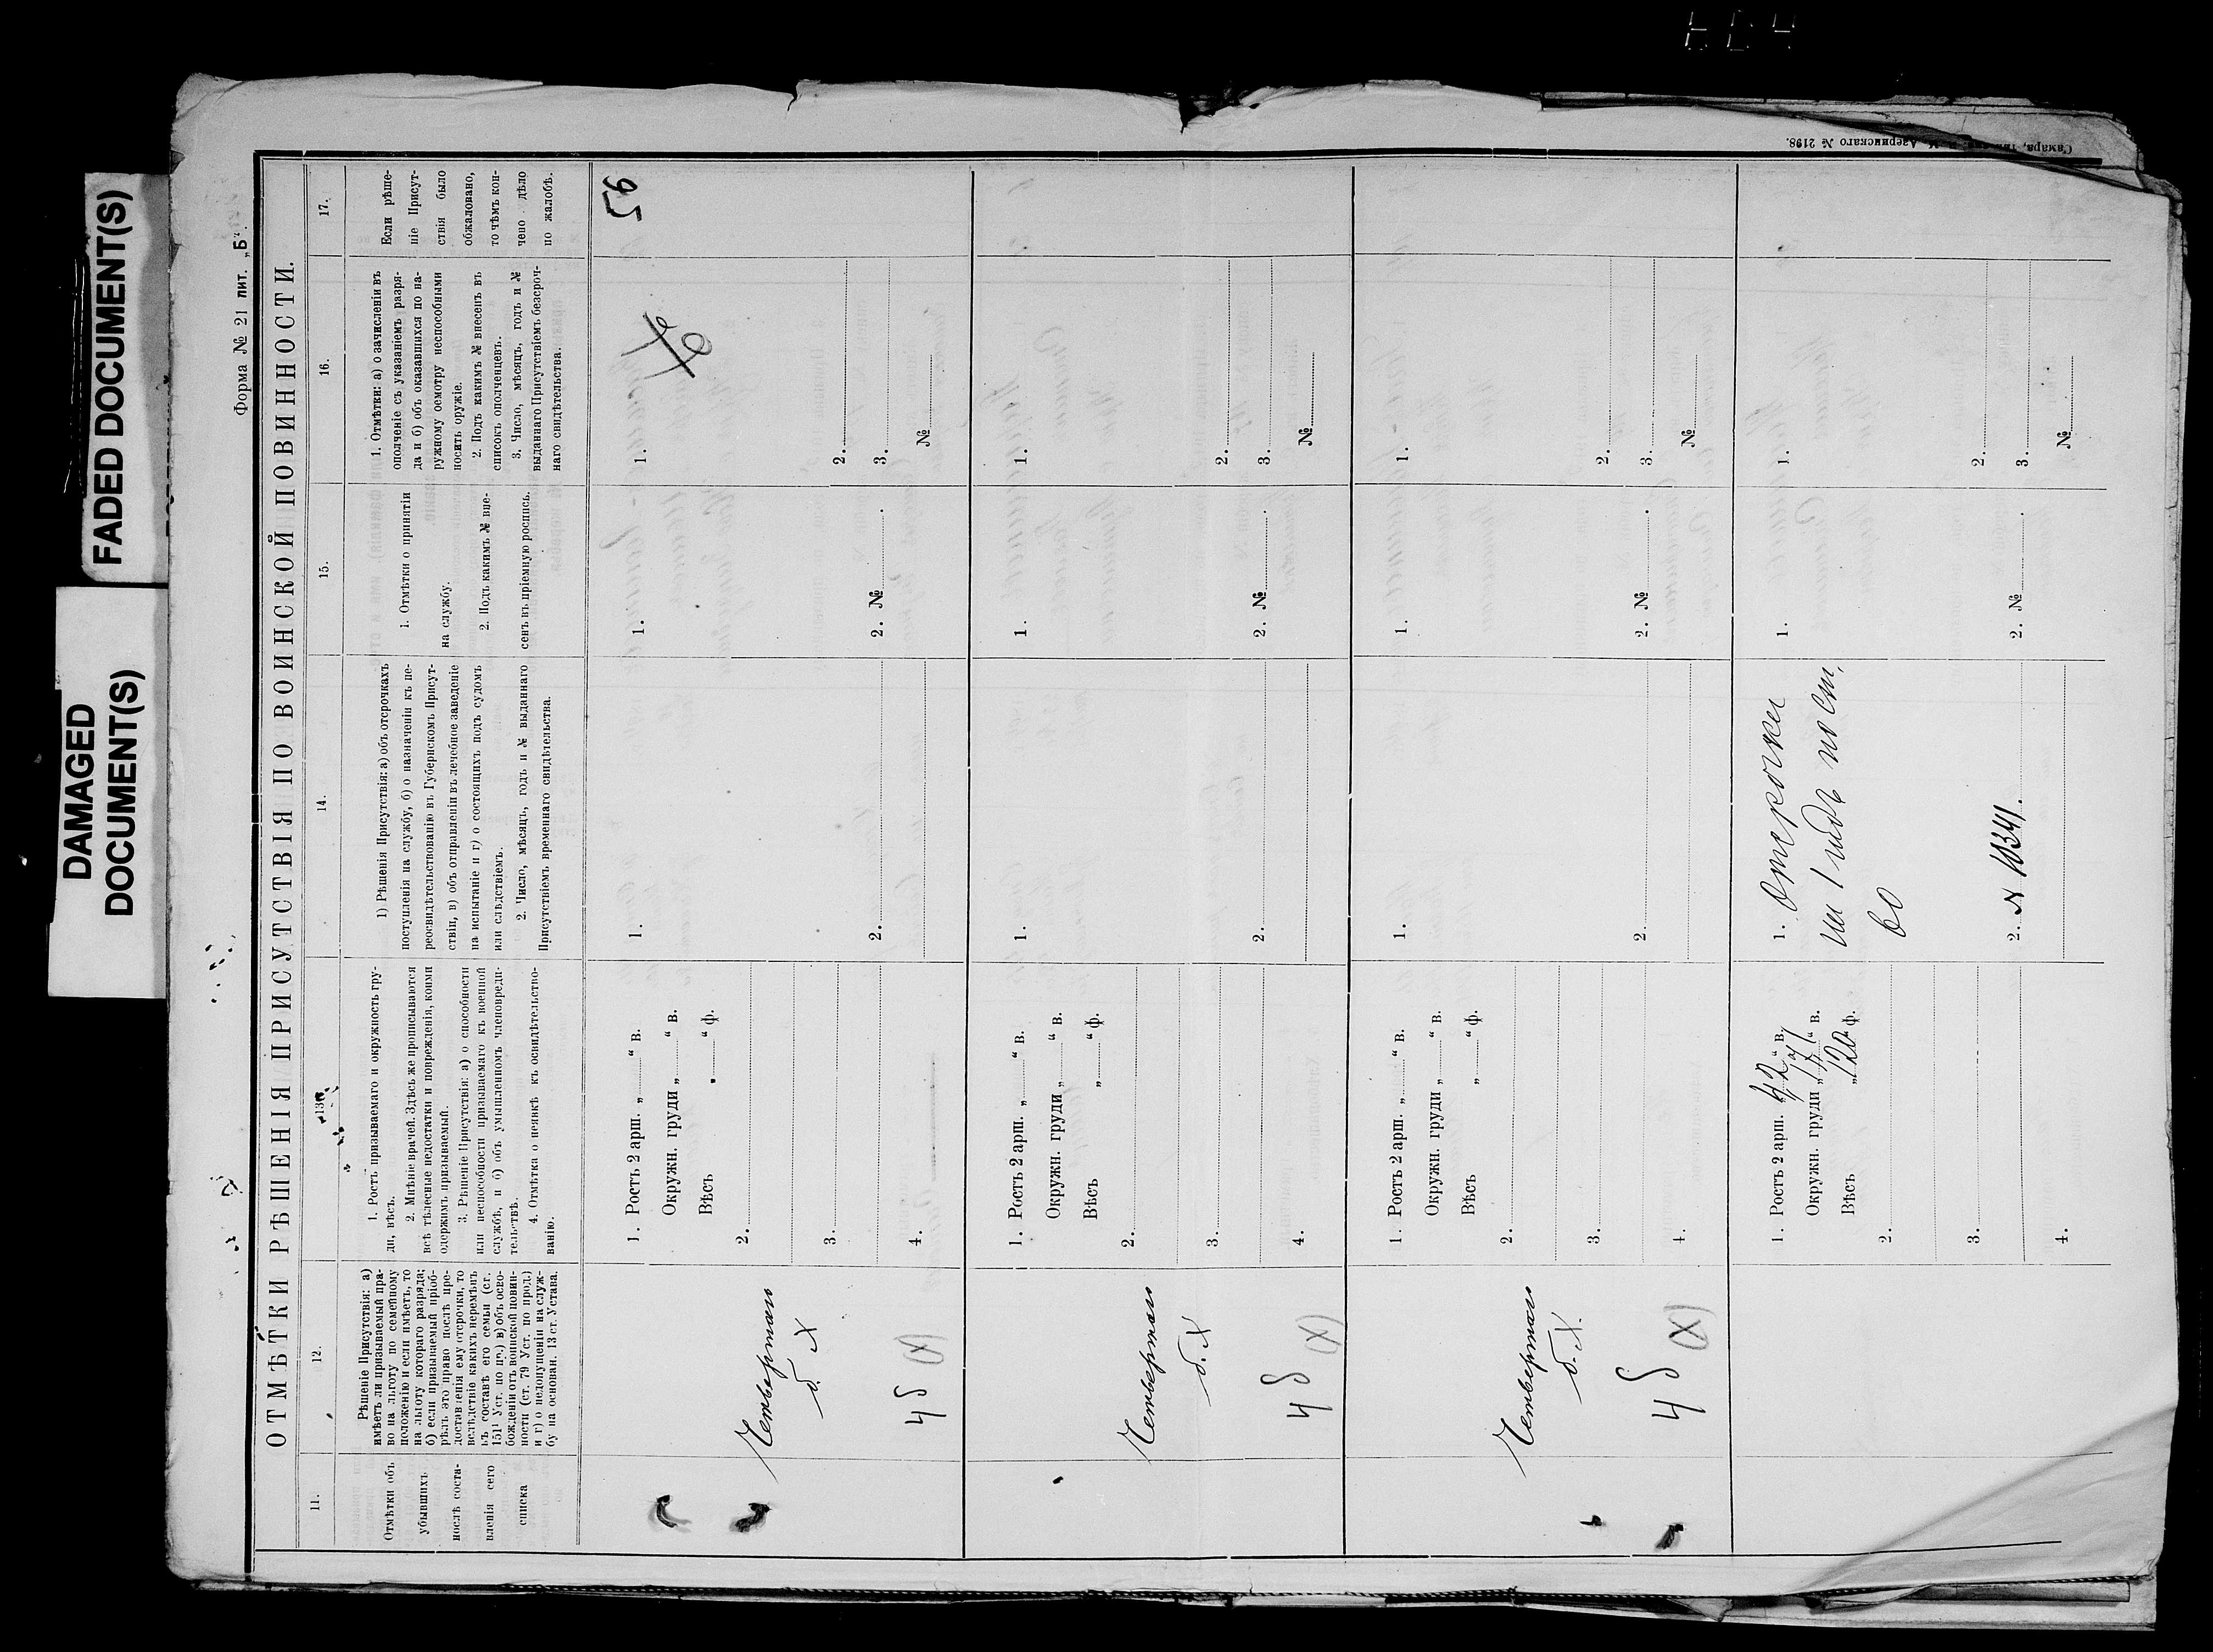 FADED DOCUMENT(S)
DAMAGED
DOCUMENT(S)
Форма № 21 лит. „Б“.
ОТМѢТКИ РѢШЕНІЯ ПРИСУТСТВІЯ ПО ВОИНСКОЙ ПОВИННОСТИ.
11.
Отмѣтки объ
убывшихъ
послѣ соста-
вленія сего
списка
12.
Рѣшеніе Присутствія: а)
имѣетъ ли призываемый пра-
во на льготу по семейному
положенію и если имѣетъ, то
на льготу котораго разряда;
б) если призываемый пріоб-
рѣлъ это право послѣ пре-
доставленія ему отсрочки, то
вслѣдствіе какихъ перемѣнъ
въ составѣ его семьи (ст.
151¹ Уст. по пр.) в) объ осво-
божденіи отъ воинской повин-
ности (ст. 79 Уст. по прод.)
и г) о недопущеніи на служ-
бу на основан. 13 ст. Устава.
13.
1. Ростъ призываемаго и окружность гру-
ди, вѣсъ.
2. Мнѣніе врачей. Здѣсь же прописываются
всѣ тѣлесные недостатки и поврежденія, коими
одержимъ призываемый.
3. Рѣшеніе Присутствія: а) о способности
или неспособности призываемаго къ военной
службѣ, и б) объ умышленномъ членовреди-
тельствѣ.
4. Отмѣтка о неявкѣ къ освидѣтельство-
ванію.
14.
1) Рѣшенія Присутствія: а) объ отсрочкахъ
поступленія на службу, б) о назначеніи къ пе-
реосвидѣтельствованію въ Губернскомъ Присут-
ствіи, в) объ отправленіи въ лечебное заведеніе
на испытаніе и г) о состоящихъ подъ судомъ
или слѣдствіемъ.
2. Число, мѣсяцъ, годъ и № выданнаго
Присутствіемъ временнаго свидѣтельства.
15.
1. Отмѣтки о принятіи
на службу.
2. Подъ какимъ № вне-
сенъ въ пріемную роспись.
16.
1. Отмѣтки: а) о зачисленіи въ
ополченіе съ указаніемъ разря-
да и б) объ оказавшихся по на-
ружному осмотру неспособными
носить оружіе.
2. Подъ какимъ № внесенъ въ
списокъ ополченцевъ.
3. Число, мѣсяцъ, годъ и №
выданнаго Присутствіемъ безсроч-
наго свидѣтельства.
17.
Если рѣше-
ніе Присут-
ствія было
обжаловано,
то чѣмъ кон-
чено дѣло
по жалобѣ.
95
1. Ростъ 2 арш. „ “ в.
Окружн. груди „ “ в.
Вѣсъ „ “ ф.
2.
3.
4.
1.
2.
1.
2. №
1.
2.
3.
№
4 б
(X)
1. Ростъ 2 арш. „ “ в.
Окружн. груди „ “ в.
Вѣсъ „ “ ф.
2.
3.
4.
1.
2.
1.
2. №
1.
2.
3.
№
4 б
(X)
1. Ростъ 2 арш. „ “ в.
Окружн. груди „ “ в.
Вѣсъ „ “ ф.
2.
3.
4.
1.
2.
1.
2. №
1.
2.
3.
№
4 б
(X)
1. Ростъ 2 арш. “ в.
Окружн. груди „ “ в.
Вѣсъ „120“ ф.
2.
3.
4.
1. Отсрочка
на 1 годъ по ст.
2. № 10341.
1.
2. №
1.
2.
3.
№
Самара, Азеринскаго № 2198.